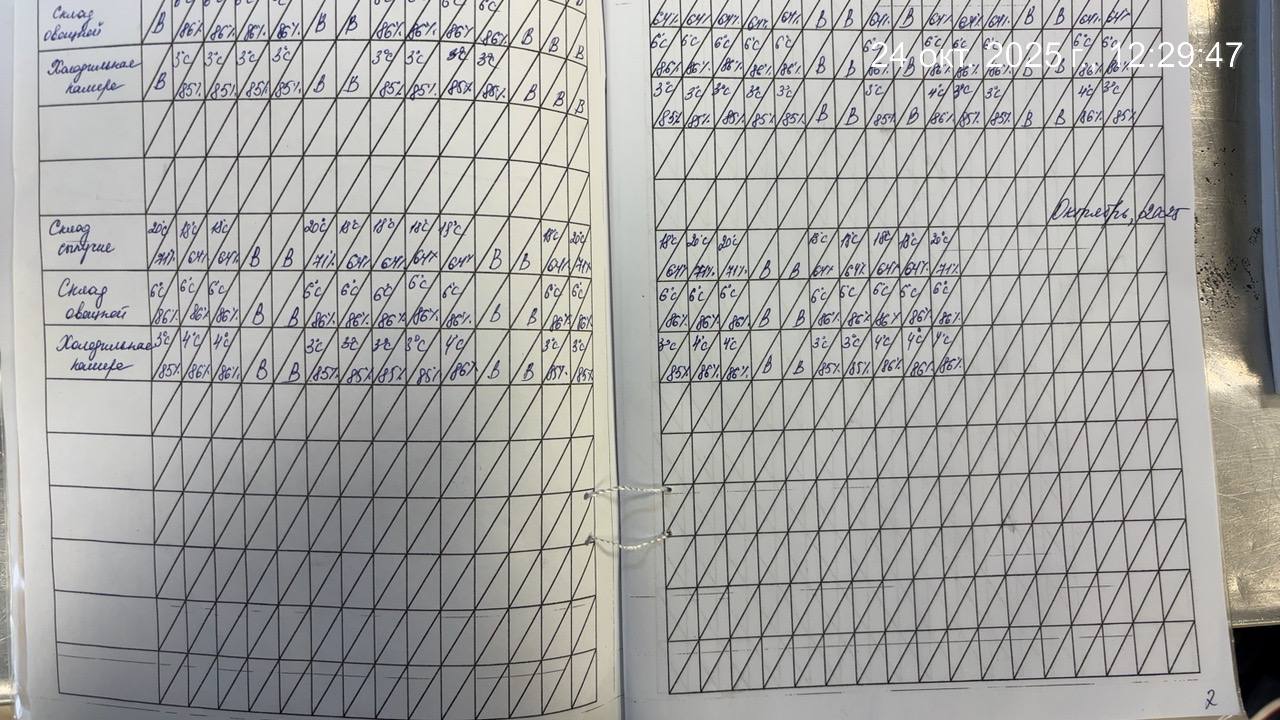 Склад овощной В 86% 86% 86% 86% В В 86% 86% 86% 86% В В В
64% 64% 64% 64% 64% В В 64% В 64% 64% 64% В В 64% 64%
6°C 6°C 6°C 6°C 6°C 6°C 6°C 6°C 6°C 6°C 6°C
24 окт. 2025 г., 12:29:47
86% 86% 86% 86% 86% В В 86% В 86% 86% 86% В В 86% 86%
Холодильная 3°C 3°C 3°C 3°C 3°C 3°C 3°C 3°C
камера В 85% 85% 85% 85% В В 85% 85% 85% 85% В В В
3°C 3°C 3°C 3°C 3°C 3°C 4°C 3°C 3°C 4°C 3°C
85% 85% 85% 85% 85% В В 85% В 86% 85% 85% В В 86% 85%
Октябрь, 2025
Склад 20°C 18°C 18°C 20°C 18°C 18°C 18°C 18°C 18°C 20°C
сыпучие 71% 64% 64% В В 71% 64% 64% 64% 64% В В 64% 71%
18°C 20°C 20°C 18°C 18°C 18°C 18°C 20°C
64% 71% 71% В В 64% 64% 64% 64% 71%
Склад 6°C 6°C 6°C 6°C 6°C 6°C 6°C 6°C 6°C 6°C
овощной 86% 86% 86% В В 86% 86% 86% 86% 86% В В 86% 86%
6°C 6°C 6°C 6°C 6°C 6°C 6°C 6°C
86% 86% 86% В В 86% 86% 86% 86% 86%
Холодильная 3°C 4°C 4°C 3°C 3°C 3°C 3°C 4°C 3°C 3°C
камера 85% 86% 86% В В 85% 85% 85% 85% 86% В В 85% 85%
3°C 4°C 4°C 3°C 3°C 4°C 4°C 4°C
85% 86% 86% В В 85% 85% 86% 86% 86%
2